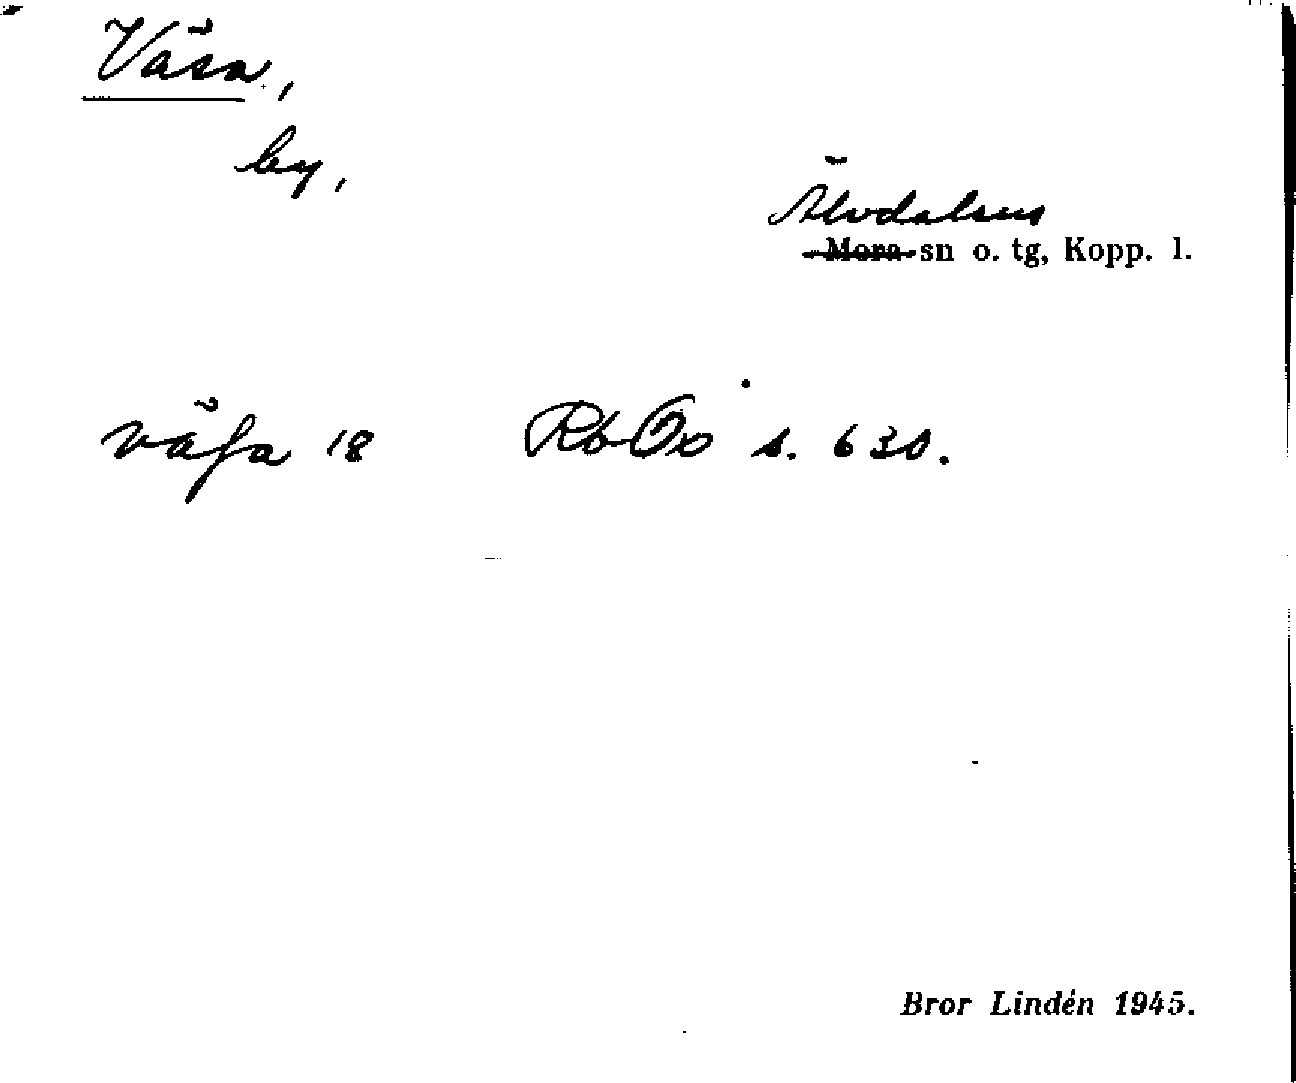 Väsa,
by,
Älvdalsns
Mora sn o. tg, Kopp. l.
väſa 18 s. 630.
Bror Lindén 1945.